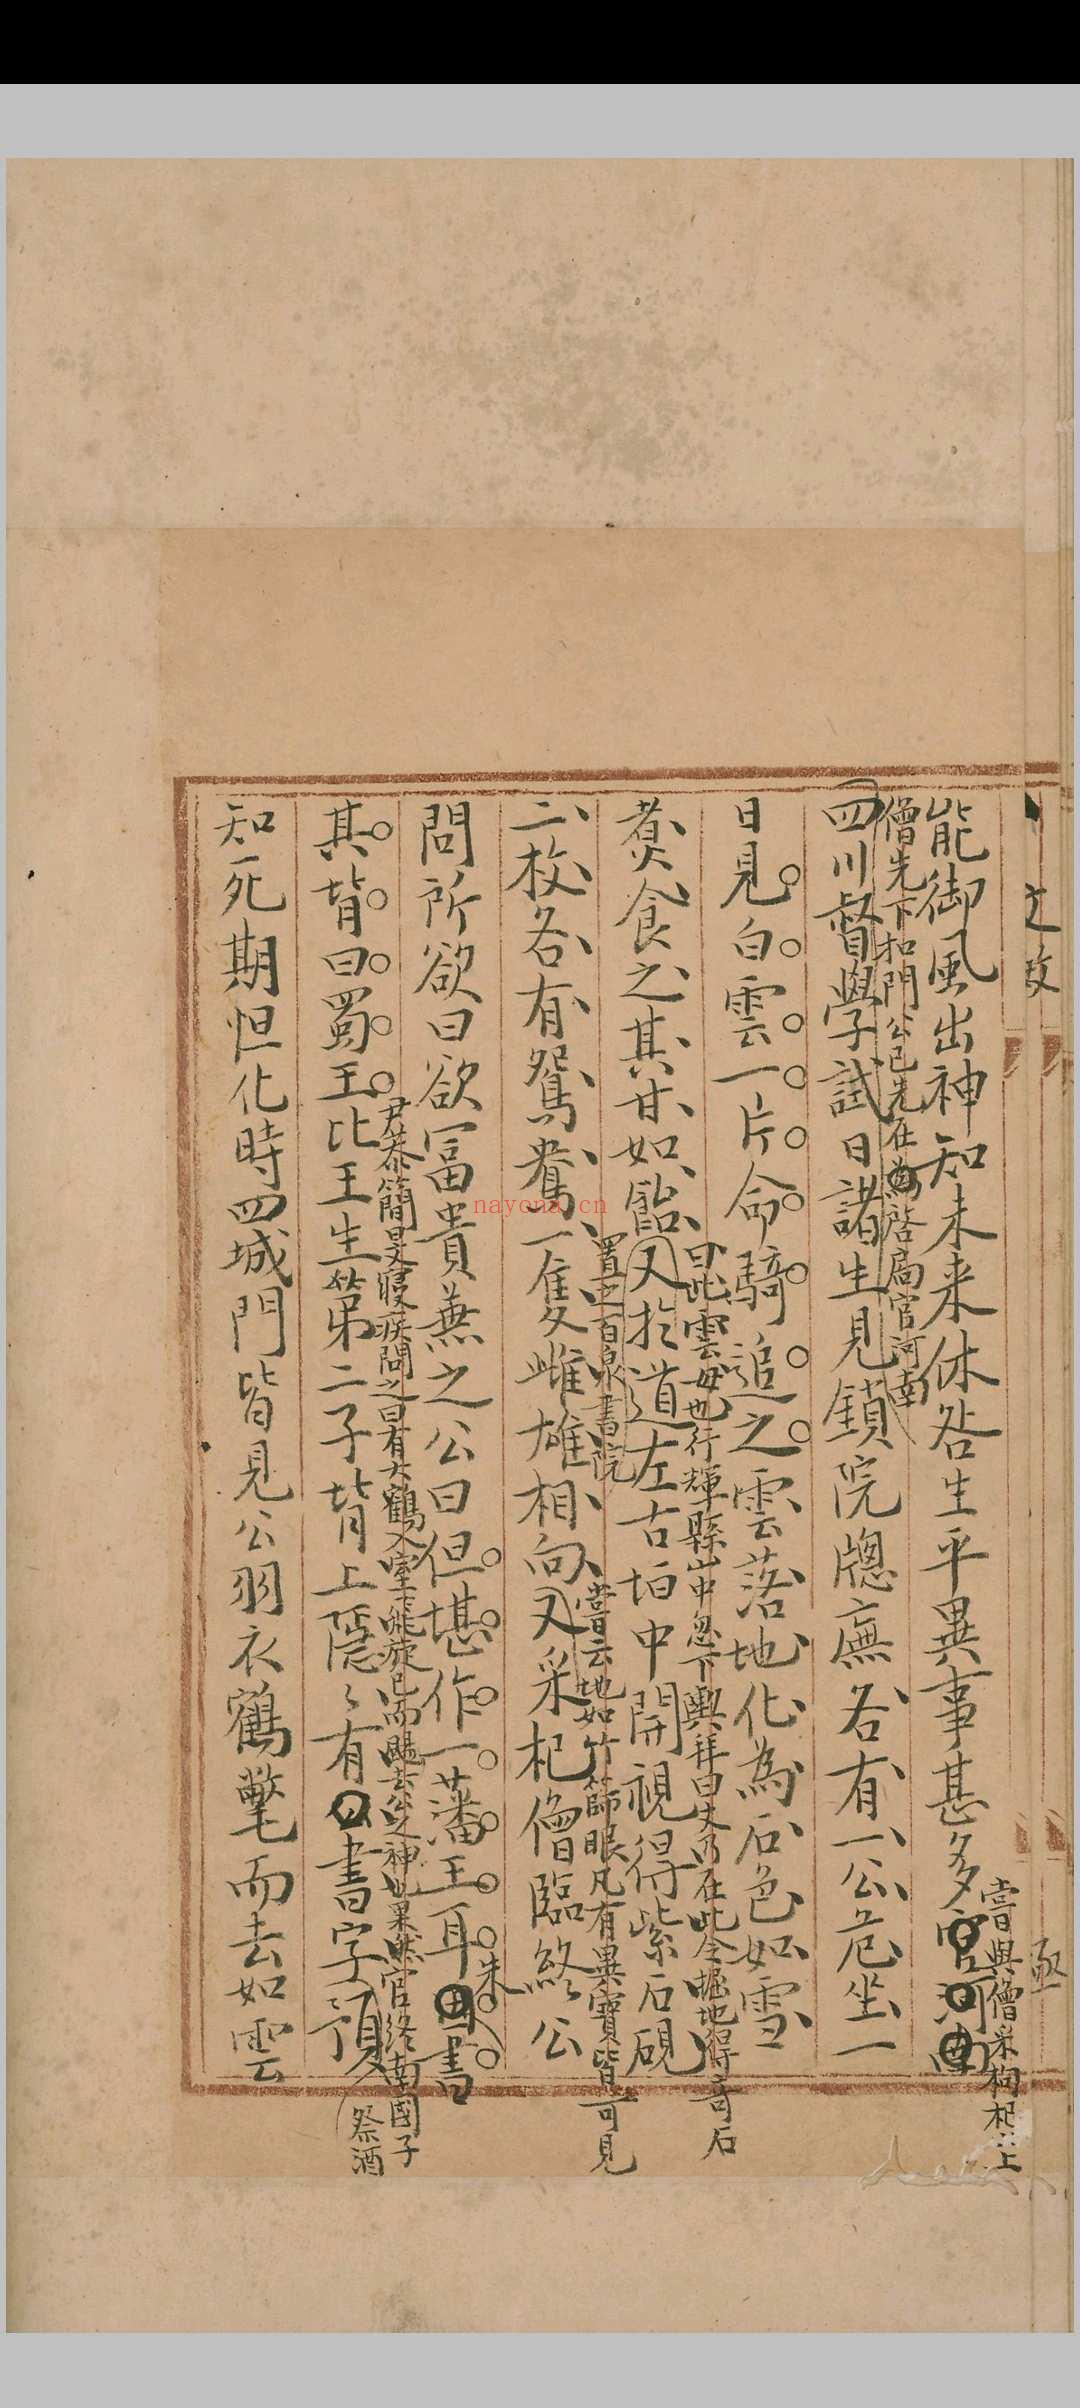 文敏
能御風出神知未来休咎生平異事甚多官河南
嘗與僧采枸杞亠上
僧先下扣門公已先在為啓扃官河南
四川督學試日諸生見鎖院牕廡各有一公危坐一
日見白雲一片命騎追之雲落地化為石色如雪
曰此雲母也行輝縣山中忽下輿拜曰丈乃在此令掘地得奇石
煑食之其甘如飴又於道左古柏中開視得紫石硯
置之百泉書院
嘗云地如竹篩眼凡有異寶皆可見
二枚各有鴛鴦一隻雌雄相向又采杞僧臨終公
問所欲曰欲富貴兼之公曰但堪作一藩王耳書
朱
其背曰蜀王比王生第二子背上隱〻有書字預
尹恭簡旻寢疾問之曰有大鶴入室飛旋已而颺去公之神也果然官終南國子
祭酒
知死期怛化時四城門皆見公羽衣鶴氅而去如雲
nayona.cn